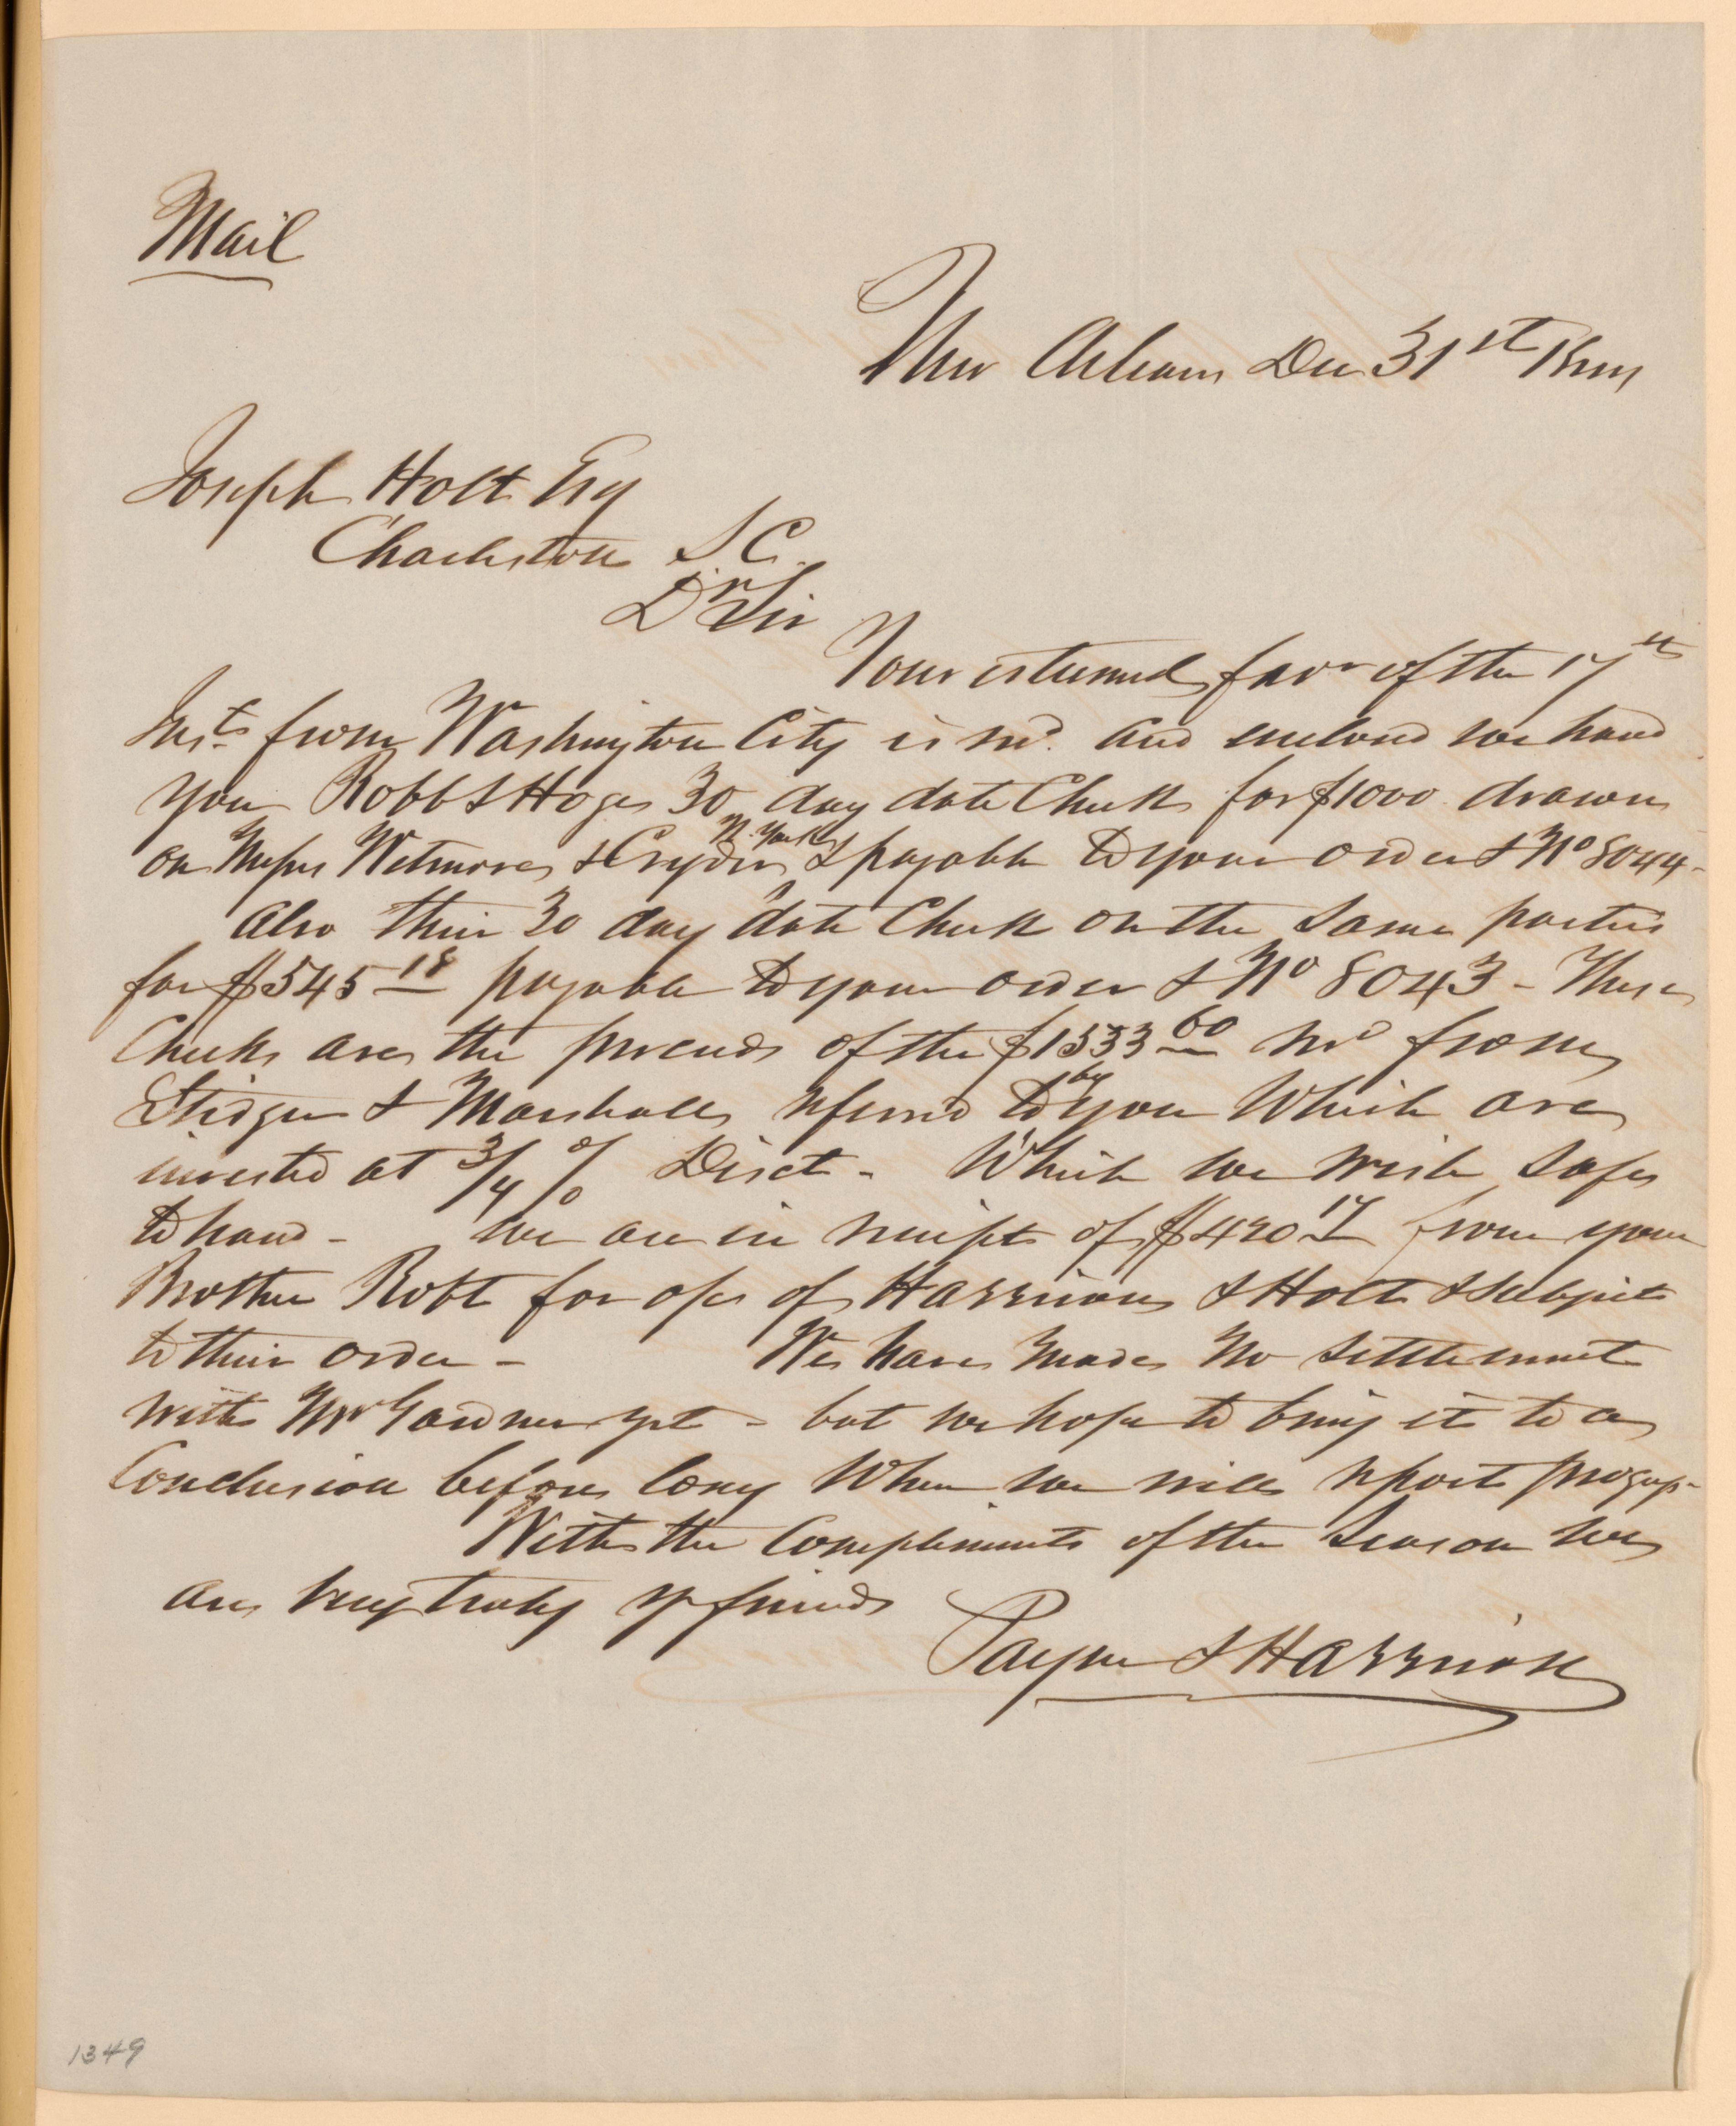 Mail
New Orleans Dec 31st
Joseph Holt Esq
Charleston S C.
Dr Sir
Your esteemed favr of the 17th
Inst from Washington City is recd. and enclosed we hand
you Robb & Hoges 30 day date Check for $1000 drawn
on Messrs Wetmore & Cryder N. York & payable to your order & No 8044-
Also their 30 day date Check on the Same parties
for $545 18 payable to your order & No 8043 - These
Checks are the proceeds of the $1533 60 recd from
Stidger & Marshall referred to by you Which are
invested at 3/4 % Disct - Which we wish safe
to hand - We are in receipt of $420 17 from your
Brother Robt for a/c of Harrison & Holt & subject
to their order - We have made no settlement
with Mr Gardner yet - but we hope to bring it to a
Conclusion before long When we will report progress-
With the Compliments of the Season we
are very truly yr friends
Payne & Harrison
1349